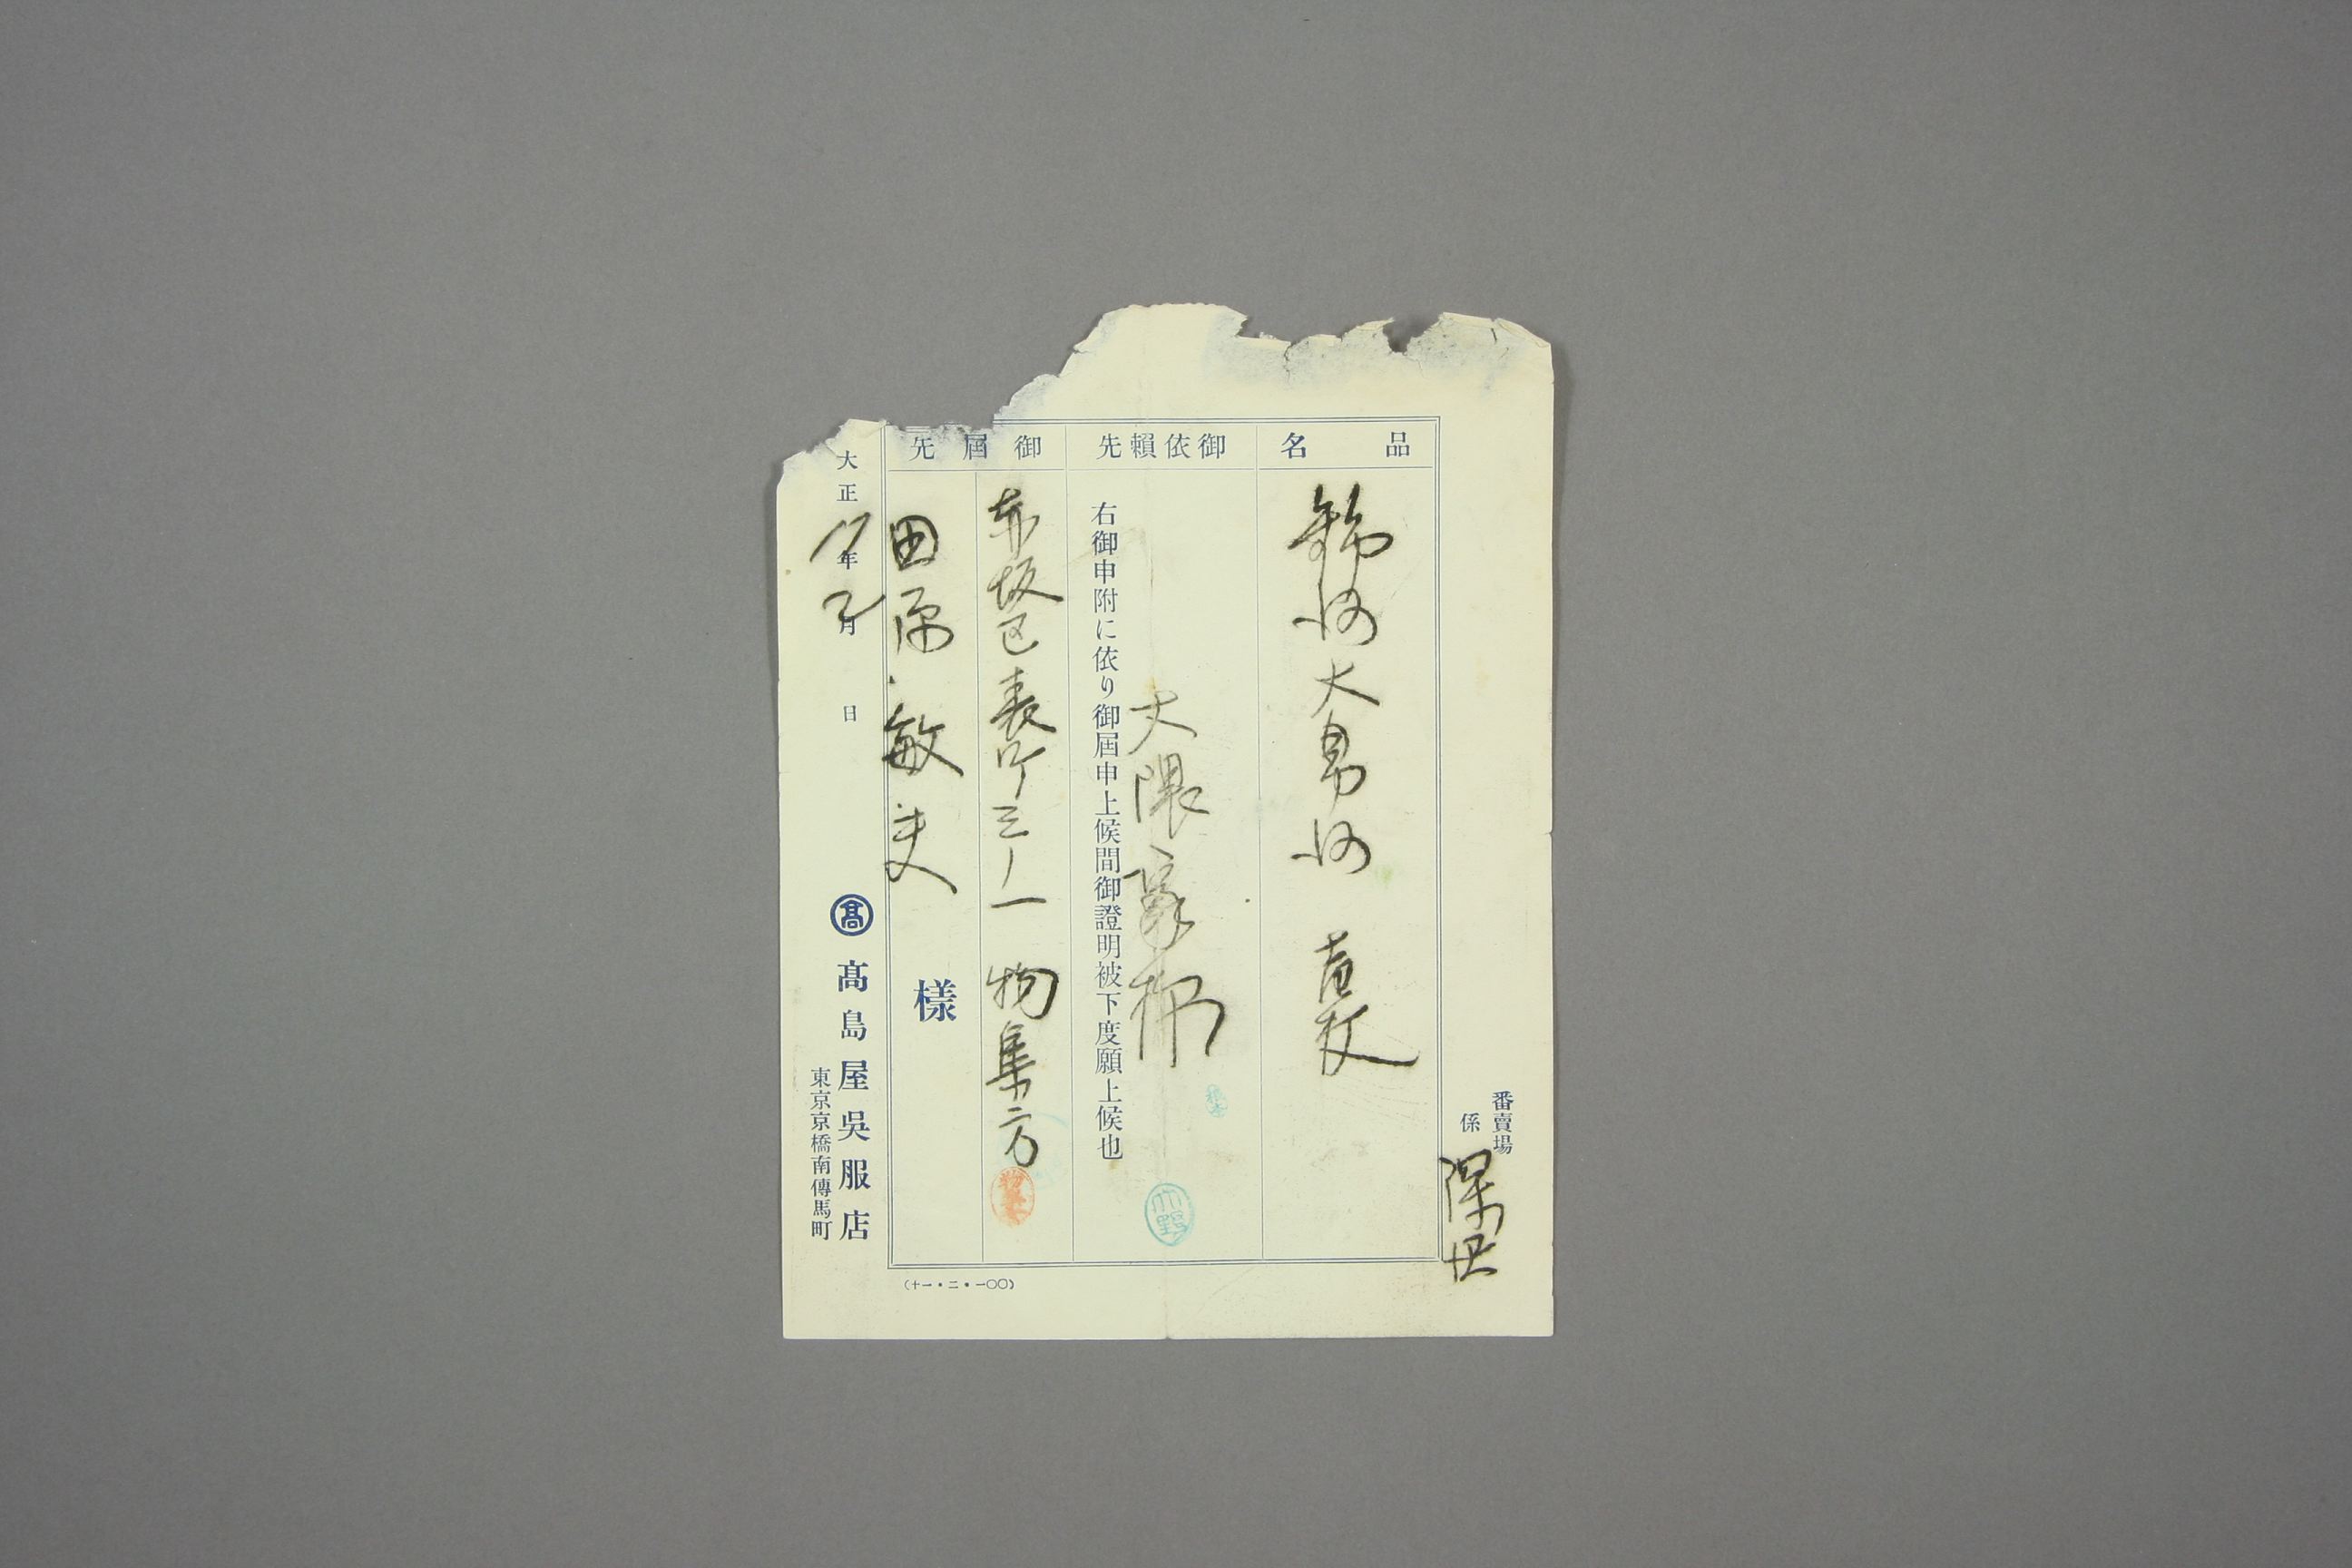 番賣場
係
品名
錦紗大帛紗 壱枚
御依賴先
大隈家扱
大野
右御申附に依り御屆申上候間御證明被下度願上候也
御屆先
赤坂区表町三ノ一 物集方
田原敏夫
樣
大正11年2月 日
髙
髙島屋吳服店
東京京橋南傳馬町
(十一・二・一〇〇)